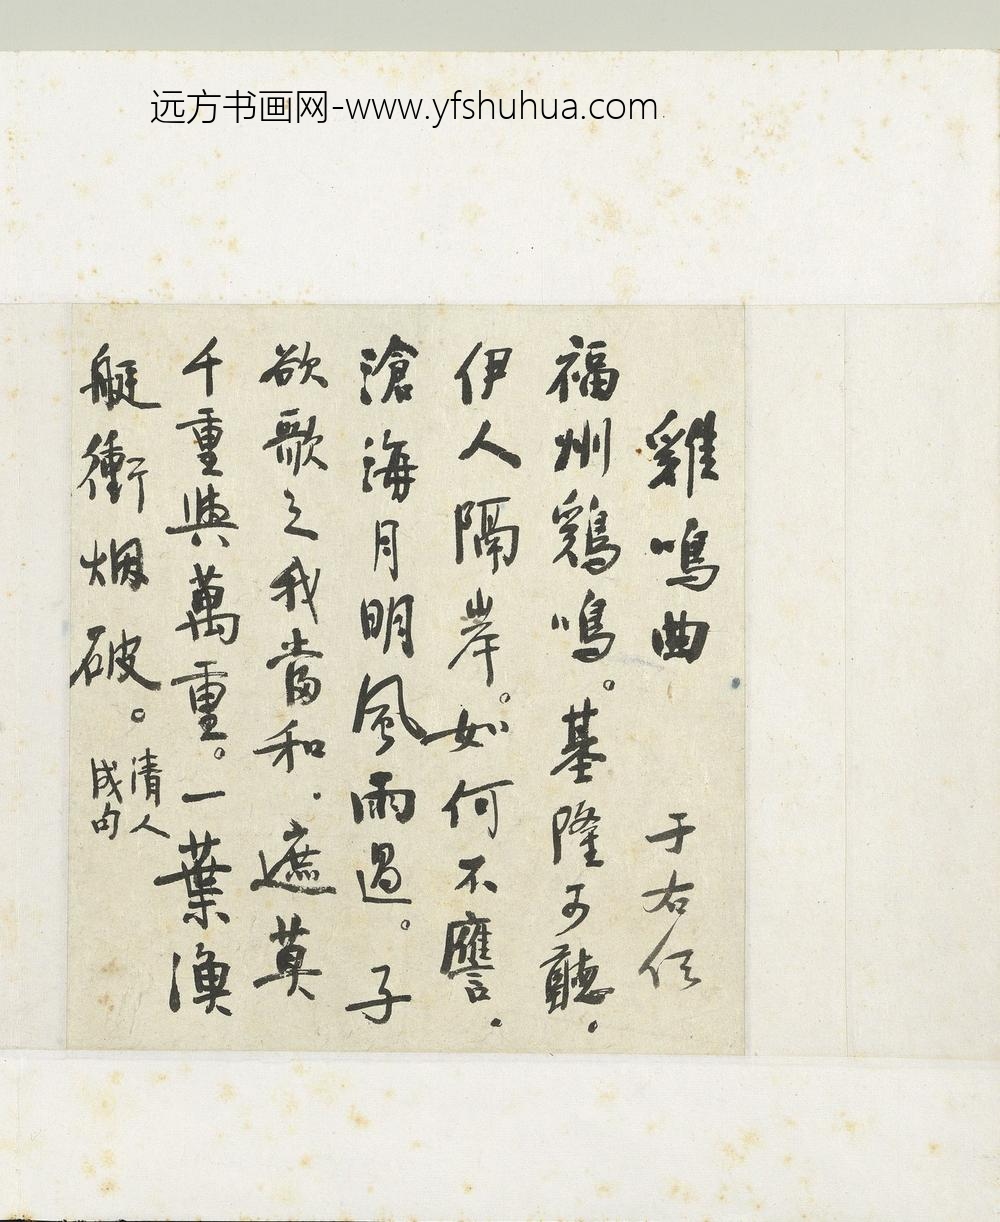 远方书画网-www.yfshuhua.com
雞鳴曲 于右任
福州鷄鳴。基隆可聽。
伊人隔岸。如何不譍。
滄海月明風雨過。子
欲歌之我當和。遮莫
千重與萬重。一葉漁
艇衝烟破。清人
成句